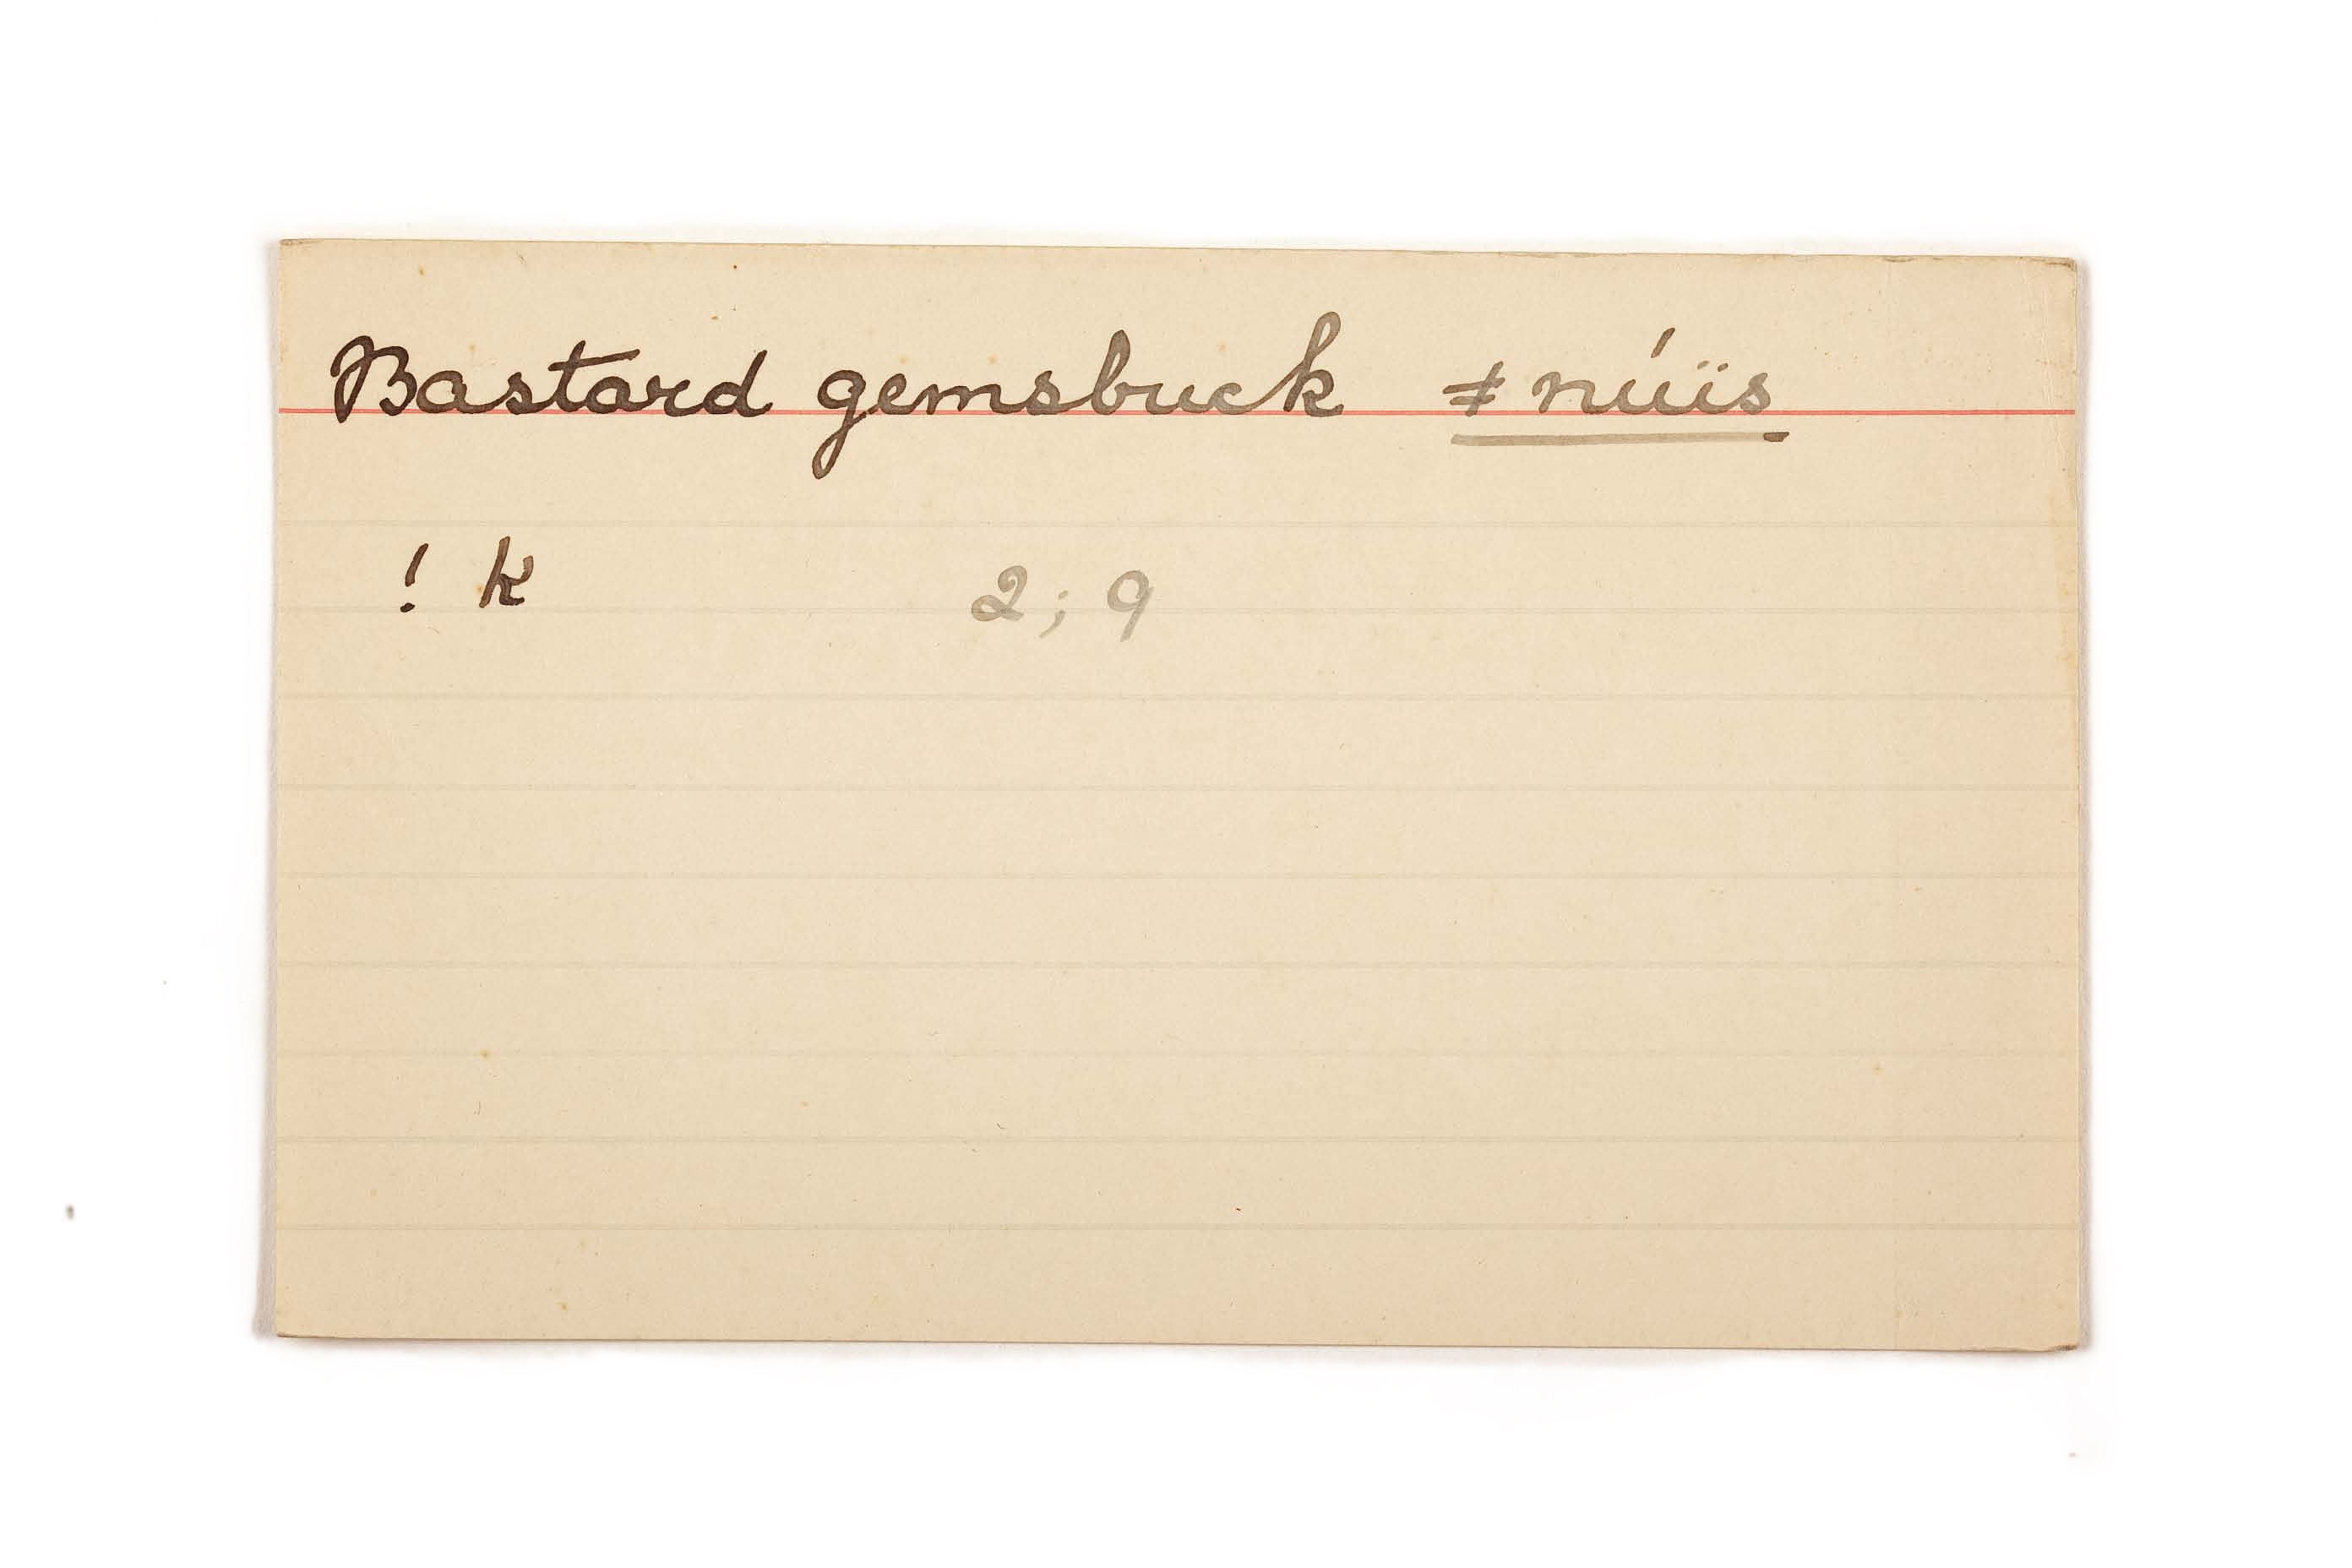 Bastard gemsbuck ǂnúïs
! k 2; 9